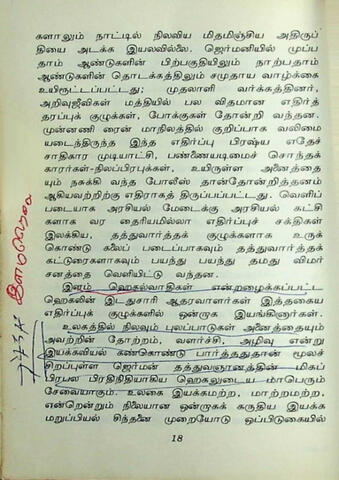 களாலும் நாட்டில் நிலவிய மிதமிஞ்சிய அதிருப்
தியை அடக்க இயலவில்லை. ஜெர்மனியில் முப்ப
தாம் ஆண்டுகளின் பிற்பகுதியிலும் நாற்பதாம்
ஆண்டுகளின் தொடக்கத்திலும் சமுதாய வாழ்க்கை
உயிரூட்டப்பட்டது; முதலாளி வர்க்கத்தினர்,
அறிவுஜீவிகள் மத்தியில் பல விதமான எதிர்த்
தரப்புக் குழுக்கள், போக்குகள் தோன்றி வந்தன.
முன்னணி ரைன் மாநிலத்தில் குறிப்பாக வலிமை
யடைந்திருந்த இந்த எதிர்ப்பு பிரஷ்ய எதேச்
சாதிகார முடியாட்சி, பண்ணையடிமைச் சொந்தக்
காரர்கள்-நிலப்பிரபுக்கள், உயிருள்ள அனைத்தை
யும் நசுக்கி வந்த போலீஸ் தான்தோன்றித்தனம்
ஆகியவற்றிற்கு எதிராகத் திருப்பப்பட்டது. வெளிப்
படையாக அரசியல் மேடைக்கு அரசியல் கட்சி
களாக வர தைரியமில்லா எதிர்ப்புச் சக்திகள்
இலக்கிய, தத்துவார்த்தக் குழுக்களாக உருக்
கொண்டு கலைப் படைப்பாகவும் தத்துவார்த்தக்
கட்டுரைகளாகவும் பயந்து பயந்து தமது விமர்
சனத்தை வெளியிட்டு வந்தன.
இளம் ஹெகல்வாதிகள் என்றழைக்கப்பட்ட
ஹெகலின் இடதுசாரி ஆதரவாளர்கள் இத்தகைய
எதிர்ப்புக் குழுக்களில் ஒன்றாக இயங்கினார்கள்.
உலகத்தில் நிலவும் புலப்பாடுகள் அனைத்தையும்
அவற்றின் தோற்றம், வளர்ச்சி, அழிவு என்று
இயக்கவியல் கண்கொண்டு பார்த்ததுதான் மூலச்
சிறப்புள்ள ஜெர்மன் தத்துவஞானத்தின் மிகப்
பிரபல பிரதிநிதியாகிய ஹெகலுடைய மாபெரும்
சேவையாகும். உலகை இயக்கமற்ற, மாற்றமற்ற,
என்றென்றும் நிலையான ஒன்றாகக் கருதிய இயக்க
மறுப்பியல் சிந்தனை முறையோடு ஒப்பிடுகையில்
18